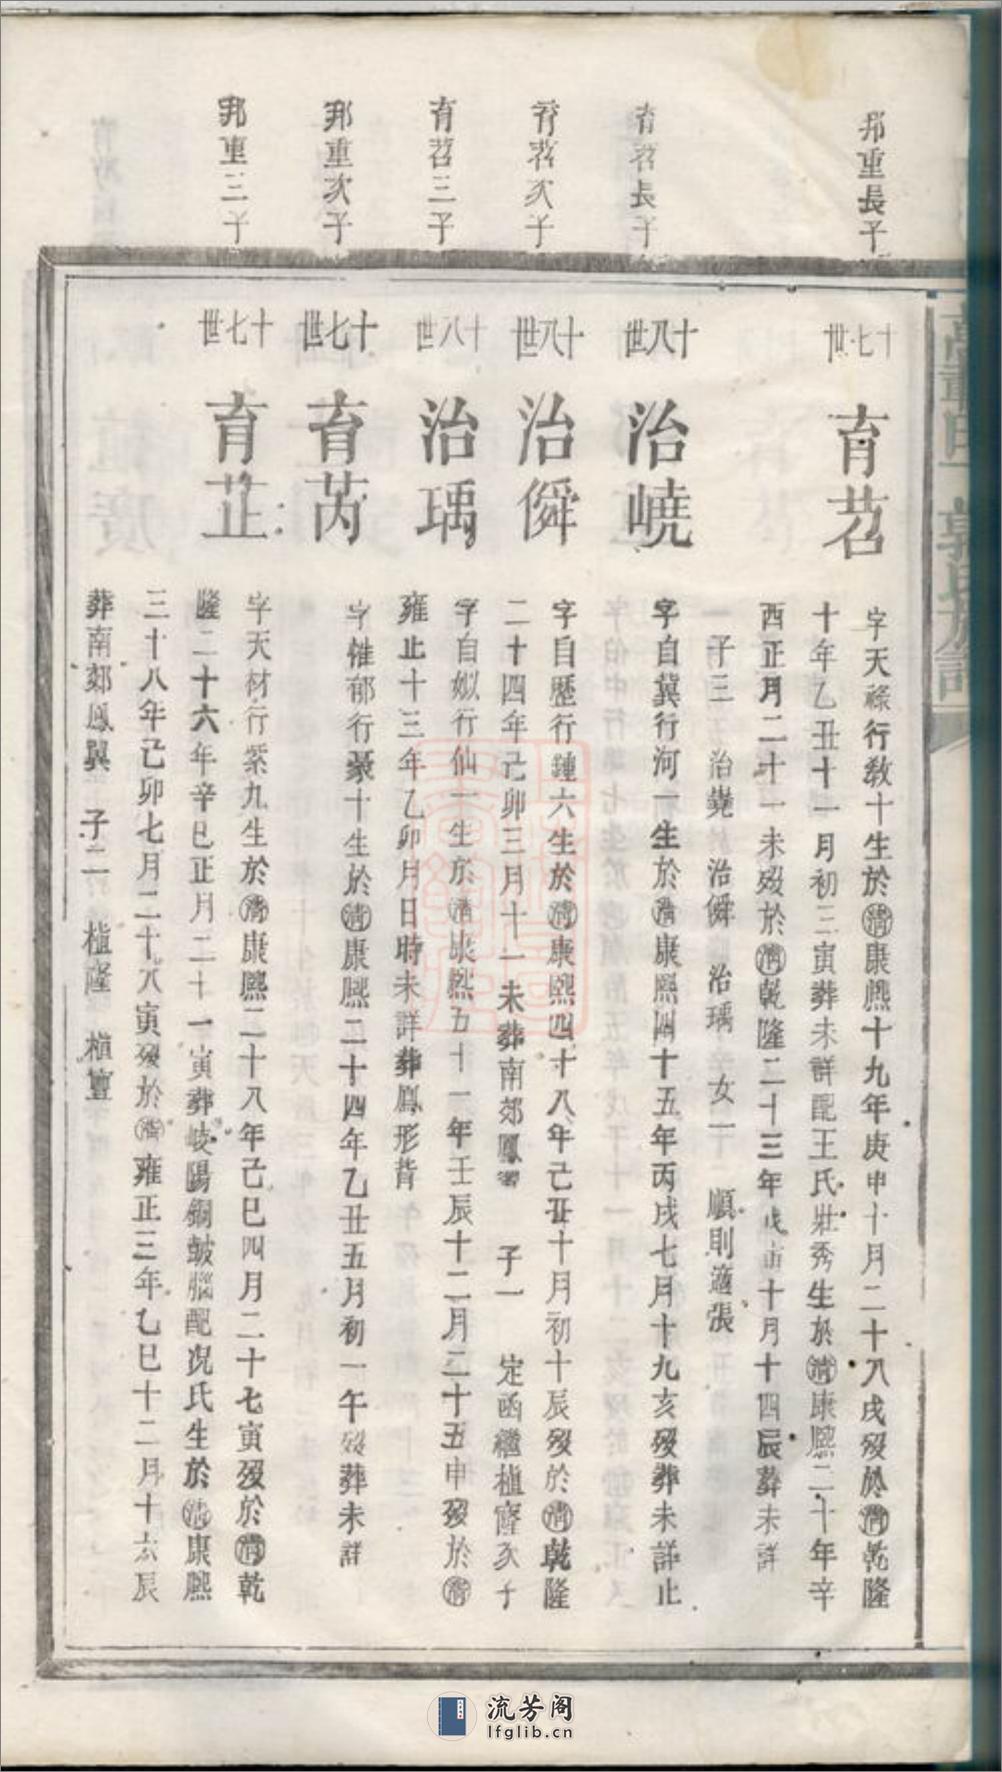 邦重長子
十七世
育苕
字天祿行敎十生於清康熙十九年庚申十月二十八戌歿於清乾隆
十年乙丑十一月初三寅葬未詳配王氏壯秀生於清康熙二十年辛
酉正月二十一未歿於清乾隆二十三年戊寅十月十四辰葬未詳
子三 治嶢 治僢 治瑀 女一 順則適張
育苕長子
十八世
治嶢
字自冀行河一生於清康熙四十五年丙戌七月十九亥歿葬未詳止
育苕次子
十八世
治僢
字自歷行鍾六生於清康熙四十八年己丑十月初十辰歿於清乾隆
二十四年己卯三月十一未葬南郊鳳 子一 定函繼植窿次子
育苕三子
十八世
治瑀
字自姒行仙一生於清康熙五十一年壬辰十二月二十五申歿於清
雍止十三年乙卯月日時未詳葬鳳形背
邦重次子
十七世
育芮
字惟郁行豪十生於清康熙二十四年乙丑五月初一午歿葬未詳
邦重三子
十七世
育芷
字天材行紫九生於清康熙二十八年己巳四月二十七寅歿於清乾
隆二十六年辛巳正月二十一寅葬岐陽銅皷腦配況氏生於清康熙
三十八年己卯七月二十八寅歿於清雍正三年乙巳十二月十六辰
葬南郊鳳翼 子二 植窿 植簠
流芳阁
lfglib.cn